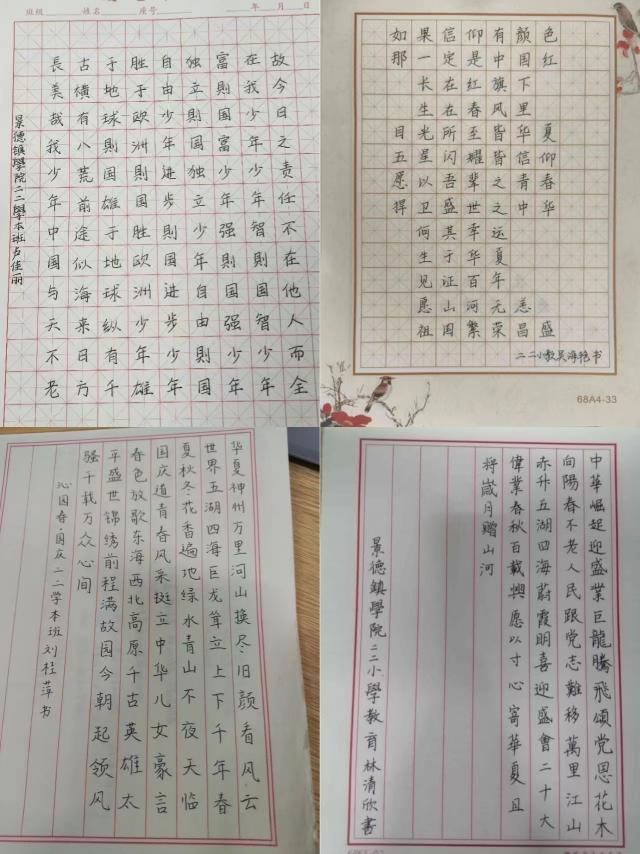 班级 姓名 座号 年 月 日
故今日之责任不在他人而全
在我少年少年智則国智少年
富則国富少年强則国强少年
独立則国独立少年自由則国
自由少年进步則国进步少年
胜于欧洲則国胜欧洲少年雄
于地球則国雄于地球纵有千
古横有八荒前途似海来日方
長美哉我少年中国与天不老
景德镇學院二二學本班佳丽
如果信仰有颜色
那一定是中国红
长在红旗下
生在春风里
目光所至皆华夏
五星闪耀皆信仰
愿以吾辈之青春
捍卫盛世之中华
何其幸运
生于华夏
见证百年
愿山河无恙
祖国繁荣昌盛
二二小教吴海艳书
68A4-33
华夏神州万里河山换尽旧颜看风云
世界五湖四海巨龙耸立上下千年春
夏秋冬花香遍地绿水青山不夜天临
国庆道青春风采挺立中华儿女豪言
春色放歌东海西北高原千古英雄太
平盛世锦绣前程满故园今朝起领风
骚千载万众心间
沁园春·国庆二二学本班刘桂萍书
中華崛起迎盛業巨龍騰飛頌党恩花木
向陽春不老人民跟党志難移萬里江山
赤升五湖四海蔚霞明喜迎盛會二十大
偉業春秋百載興愿以寸心寄華夏且
将歲月贈山河
景德鎮學院二二小學教育林清欣書